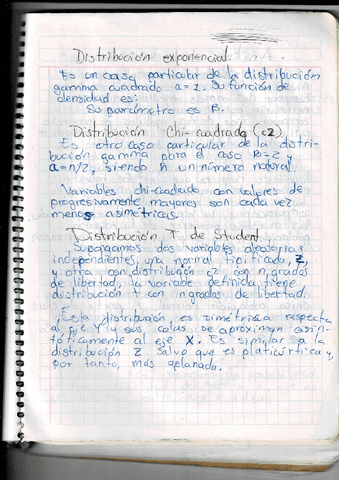 Distribución exponencial.
Es un caso particular de la distribución
gamma cuadrado a=1. Su función de
densidad es:
Su parámetro es B.
Distribución Chi-cuadrado (c2)
Es otro caso particular de la distri-
bución gamma para el caso B=2 y
a=n/2, siendo n un número natural.
Variables chi-cuadrado con valores de
progresivamente mayores son cada vez
menos asimétricas.
Distribución T de Student
Supongamos dos variables aleatorias
independientes, una normal tipificada, Z,
y otra con distribución c2 con n grados
de libertad, la variable definida tiene
distribución t con n grados de libertad.
Esta distribución es simétrica respecto
al eje Y y sus colas se aproximan asin-
tóticamente al eje X. Es similar a la
distribución Z salvo que es platicúrtica y,
por tanto, más aplanada.